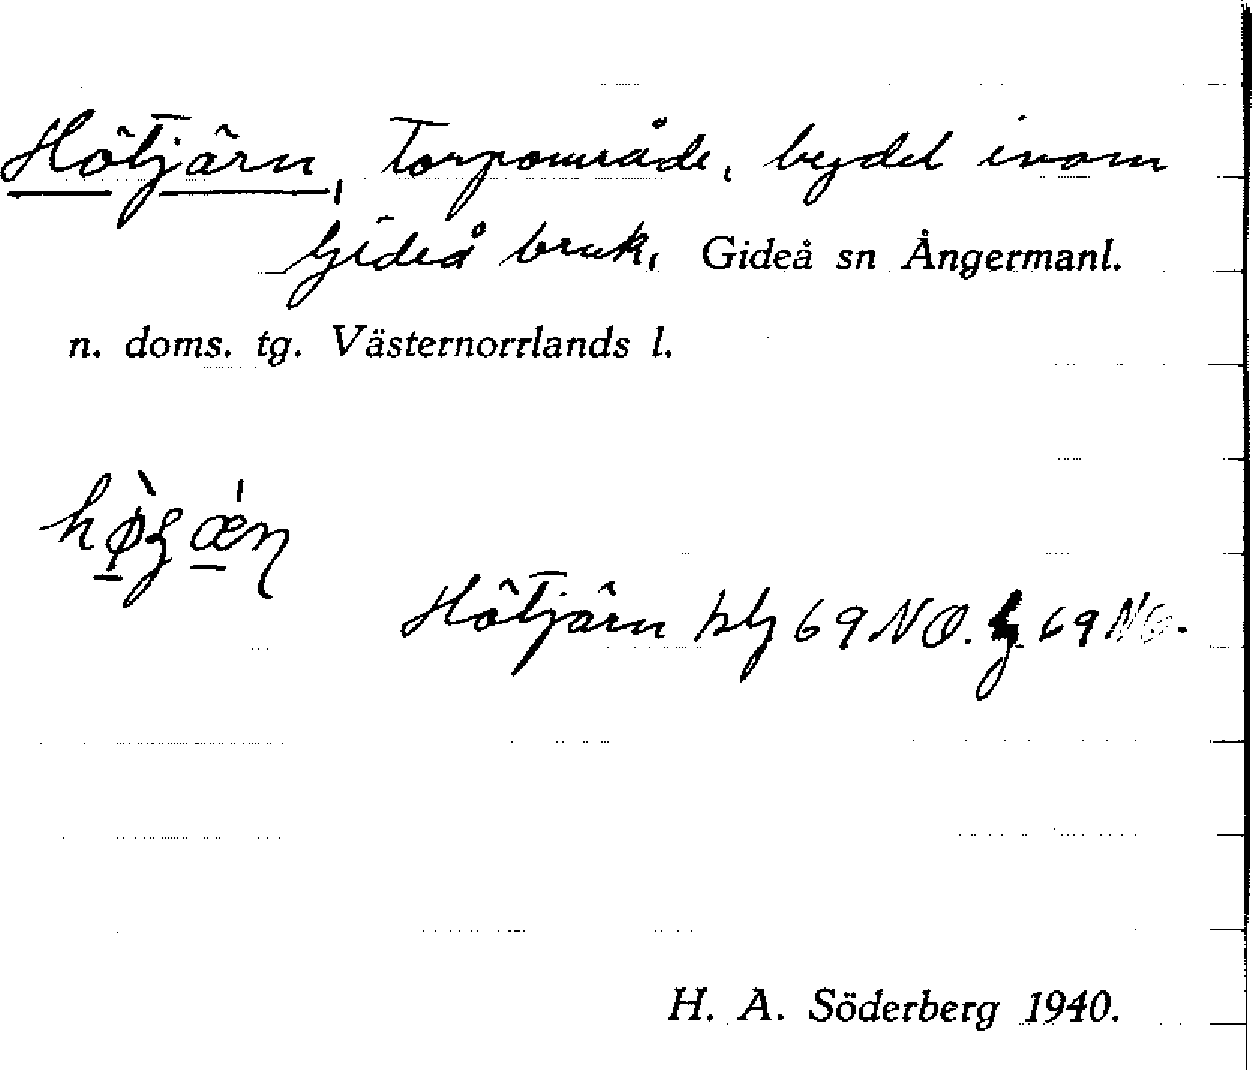 Hötjärn, Torpområde, bydel inom
Gideå bruk, Gideå sn Ångermanl.
n. doms. tg. Västernorrlands l.
Hötjärn blg 69 NO. 69
H. A. Söderberg 1940.